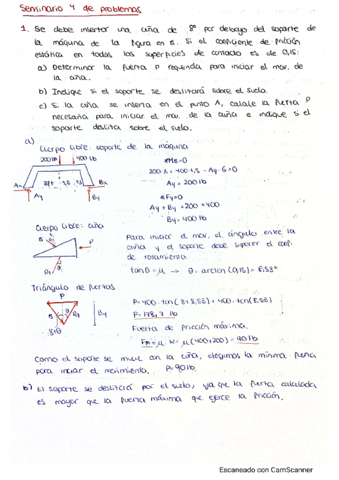 Seminario 4 de problemas
1. Se debe insertar una cuña de 8º por debajo del soporte de
la máquina de la figura en B. Si el coeficiente de fricción
estática en todas las superficies de contacto es de 0,15:
a) Determinar la fuerza P requerida para iniciar el mov. de
la cuña.
b) Indique si el soporte se deslizará sobre el suelo.
c) Si la cuña se inserta en el punto A, calcule la fuerza P
necesaria para iniciar el mov. de la cuña e indique si el
soporte desliza sobre el suelo.
a)
Cuerpo libre: soporte de la máquina
200 lb 400 lb
Ax Ay Bx By
ΣMB=0
200·3 + 400·1,5 - Ay·6 = 0
Ay = 200 lb
ΣFy=0
Ay + By = 200 + 400
By = 400 lb
Cuerpo libre: cuña
P
Para iniciar el mov. el ángulo entre la
cuña y el soporte debe superar el coef.
de rozamiento.
tanθ = μ → θ = arctan (0,15) = 8,53º
Triángulo de fuerzas
P
By
8+θ
P = 400 · tan (8+8,53) + 400 · tan (8,53)
P = 178,7 lb
Fuerza de fricción máxima.
= μ · N = μ (400+200) = 90 lb
Como el soporte se mueve con la cuña, elegimos la mínima fuerza
para iniciar el movimiento. P=90 lb.
b) El soporte se deslizará por el suelo, ya que la fuerza calculada
es mayor que la fuerza máxima que ejerce la fricción.
Escaneado con CamScanner